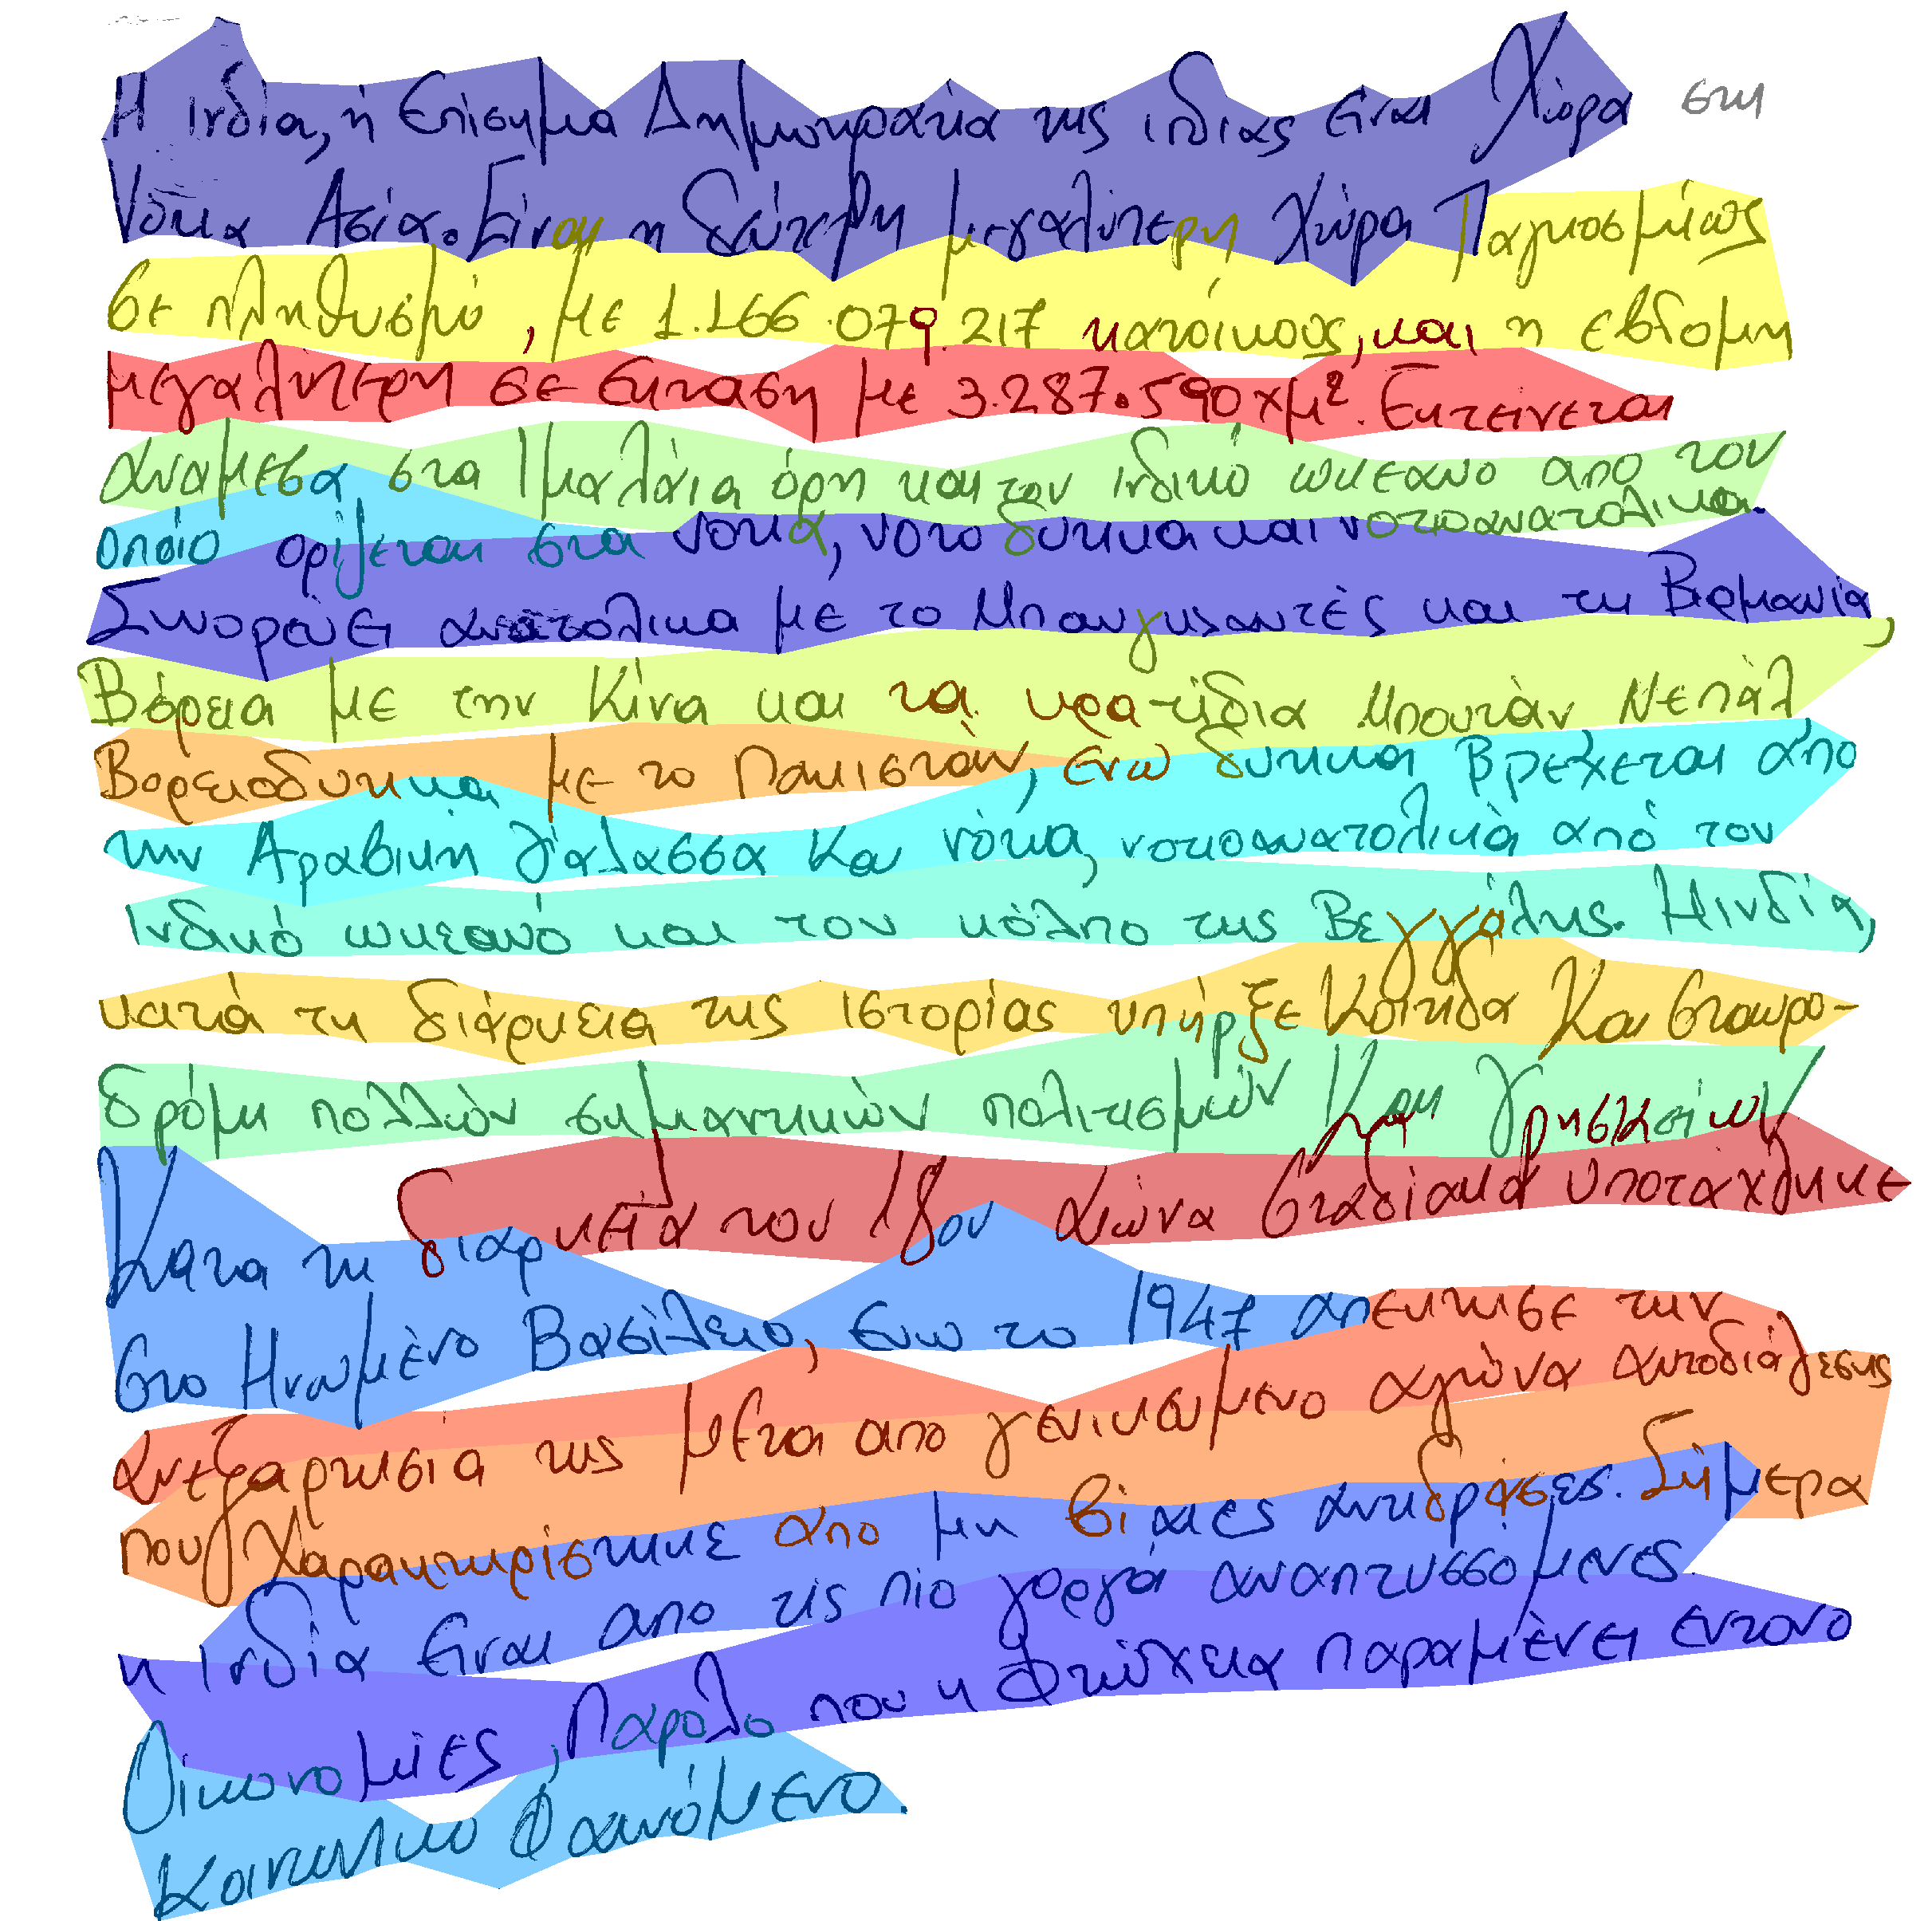 Η Ινδία, ή Επίσημα Δημοκρατία της ινδίας είναι Χώρα στη
Νότια Ασία. Είναι η δεύτερη μεγαλύτερη Χώρα Παγκοσμίως
σε πληθυσμό, με 1.166.079.217 κατοίκους, και η εβδομη
μεγαλύτερη σε έκταση με 3.287.590 χμ². Εκτείνεται
ανάμεσα στα Ιμαλάια όρη και τον ινδικό ωκεανό από τον
οποίο ορίζεται στα νότια, νοτιοδυτικα και νοτιοανατολικα.
Συνορεύει ανατολικα με το Μπανγκλαντές και τη Βιρμανία,
Βόρεια με την Κίνα και τα κρατίδια Μπουτάν Νεπάλ
Βορειοδυτικα με το Πακιστάν, ενώ δυτικα βρέχεται απο
την Αραβική θάλασσα Και νότια, νοτιοανατολικά από τον
Ινδικό ωκεανό και τον κόλπο της Βεγγάλης. Η ινδία,
κατά τη διάρκεια της ιστορίας υπήρξε Κοιτίδα Και σταυρο-
δρόμι πολλών σημαντικών πολιτισμών Και θρησκειών
Κατα τη διάρκεια του 18ου αιώνα σταδιακά υποτάχθηκε
στο Ηνωμένο Βασίλειο, ενω το 1947 απέκτισε την
ανεξαρτησία της μετα απο γενικευμενο αγώνα αυτοδιάθεσης
που χαρακτηρίστηκε απο μη βίαιες αντιδράσεις. Σήμερα
η Ινδία είναι απο τις πιο γοργά αναπτυσσόμενες
Οικονομίες, Παρολο που η Φτώχεια παραμένει εντονο
Κοινωνικο Φαινόμενο.